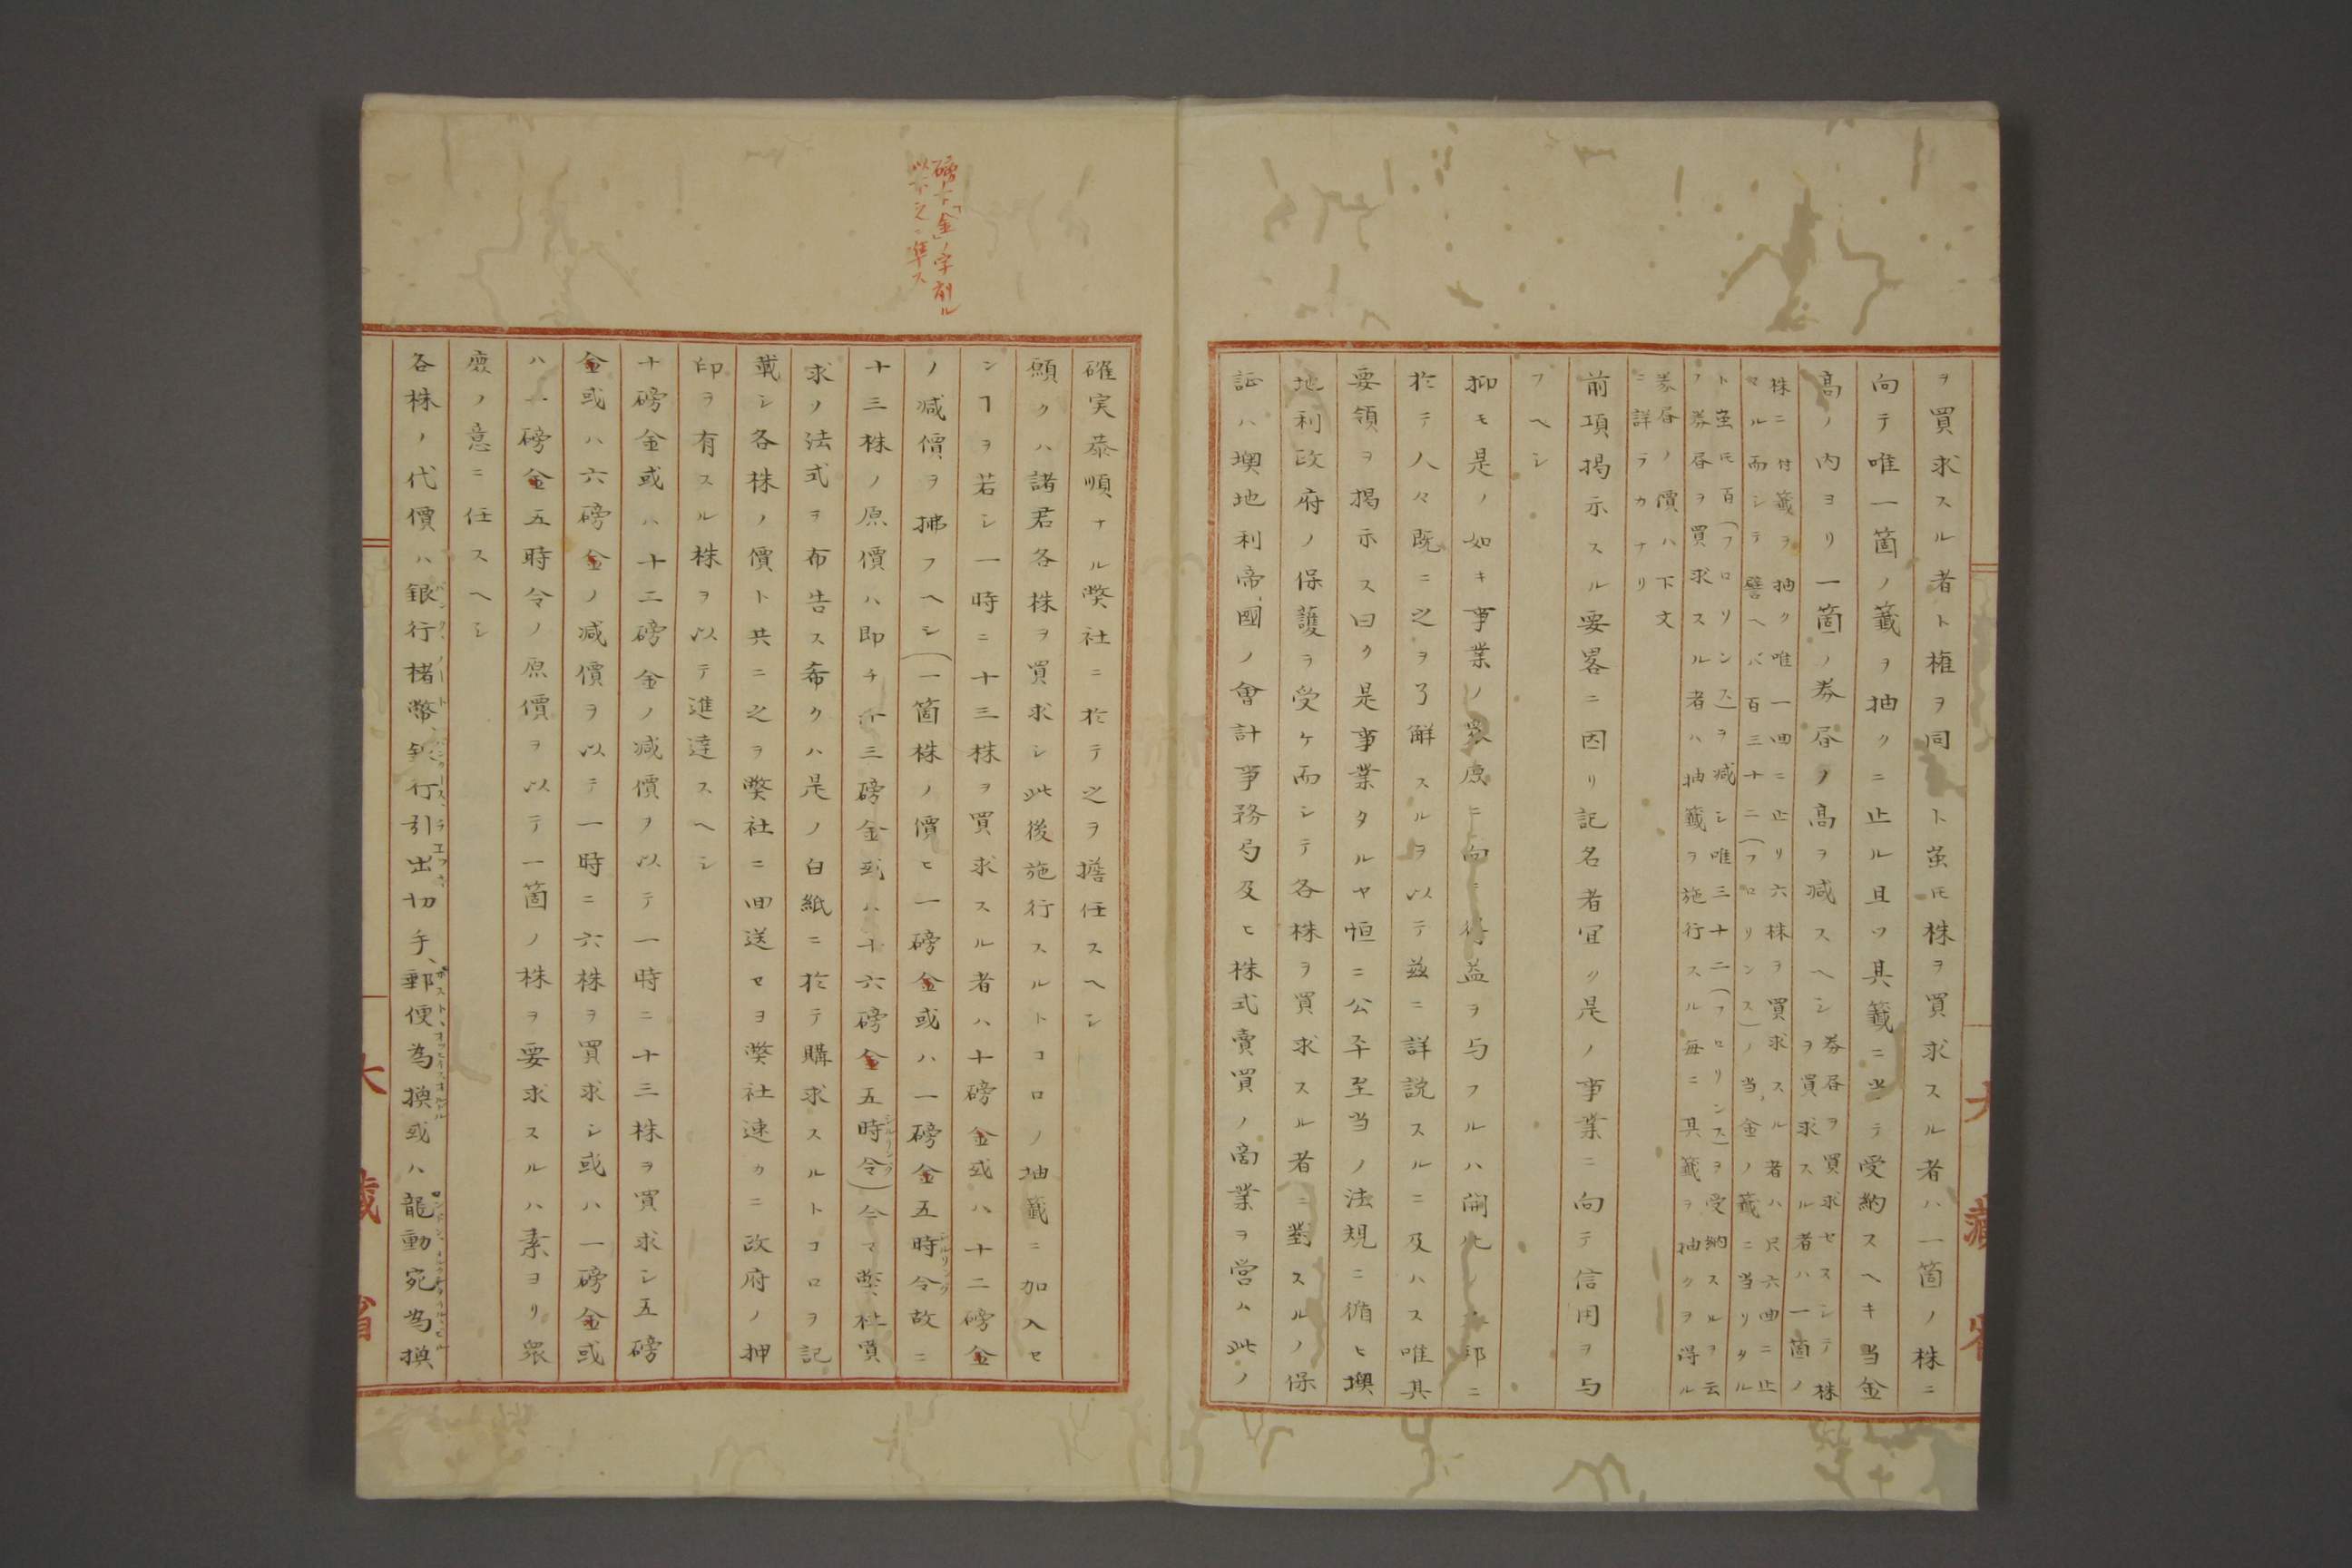 ヲ買求スル者ト権ヲ同ト茧𪜈株ヲ買求スル者ハ一箇ノ株ニ
向テ唯一箇ノ籤ヲ抽クニ止ル且ツ其籤ニ当テ受納スヘキ当金
髙ノ内ヨリ一箇ノ券昏ノ髙ヲ减スヘシ
券昏ヲ買求セスシテ株
ヲ買求スル者ハ一箇ノ
株ニ付籤ヲ抽ク唯一回ニ止リ六株ヲ買求スル者ハ只六回ニ止
マル而シテ譬ヘバ百三十二(フロリンス)ノ当金ノ籤ニ当リタル
ト茧𪜈百(フロリンス)ヲ减シ唯三十二(フロリンス)ヲ受納スルヲ云
フ券昏ヲ買求スル者ハ抽籤ヲ施行スル毎ニ其籤ヲ抽クヲ得ル
券昏ノ價ハ下文
ニ詳テカナリ
前項掲示スル要畧ニ因リ記名者冝ク是ノ事業ニ向テ信用ヲ与
フヘシ
抑モ是ノ如キ事業ノ衆庶ニ向ニ得益ヲ与フルハ開化ノ邦ニ
於テ人々既ニ之ヲ了解スルヲ以テ茲ニ詳説スルニ及ハス唯其
要領ヲ掲示ス曰ク是事業タルヤ恒ニ公平至当ノ法規ニ循ヒ墺
地利政府ノ保護ヲ受ケ而シテ各株ヲ買求スル者ニ對スルノ保
証ハ墺地利帝國ノ會計事務局及ヒ株式賣買ノ商業ヲ営ム此ノ
確実恭順ナル弊社ニ於テ之ヲ擔任スヘシ
願クハ諸君各株ヲ買求シ此後施行スルトコロノ抽籤ニ加入セ
ンヿヲ若シ一時ニ十三株ヲ買求スル者ハ十磅金或ハ十二磅金
ノ减價ヲ拂フヘシ(一箇株ノ價ヒ一磅金或ハ一磅金五時令故ニ
シルリング
十三株ノ原價ハ即チ十三磅金或ハ十六磅金五時令)今マ弊社買
シルリング
求ノ法式ヲ布告ス希クハ是ノ白紙ニ於テ購求スルトコロヲ記
載シ各株ノ價ト共ニ之ヲ弊社ニ回送セヨ弊社速カニ政府ノ押
印ヲ有スル株ヲ以テ進達スヘシ
十磅金或ハ十二磅金ノ减價ヲ以テ一時ニ十三株ヲ買求シ五磅
金或ハ六磅金ノ减價ヲ以テ一時ニ六株ヲ買求シ或ハ一磅金或
ハ一磅金五時令ノ原價ヲ以テ一箇ノ株ヲ要求スルハ素ヨリ衆
庶ノ意ニ任スヘシ
各株ノ代價ハ銀行楮幣、銀行引出切手、郵便為換或ハ龍動宛為換
磅下「金」ノ字削ル
以下之ニ準ス
大藏省